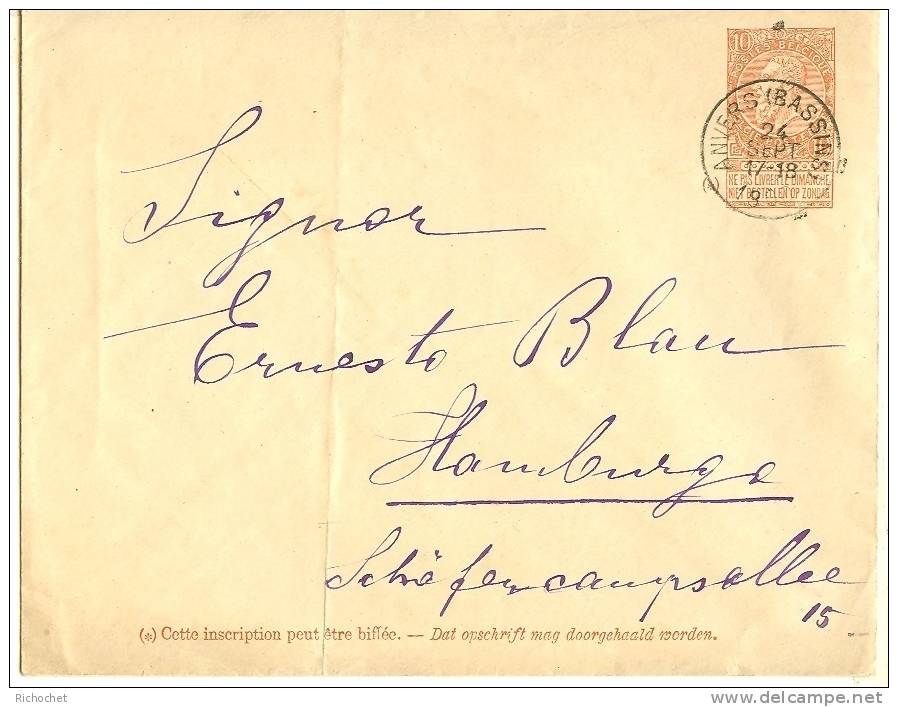 10
POSTES BELGIQUE
ANVERS (BASSINS)
24
SEPT
17-18
NE PAS LIVRER LE DIMANCHE
NIET BESTELLEN OP ZONDAG
Signor
Ernesto Blau
Hamburgo
Schäfercampsallee
15
(*) Cette inscription peut être biffée. — Dat opschrift mag doorgehaald worden.
Richochet
www.delcampe.net